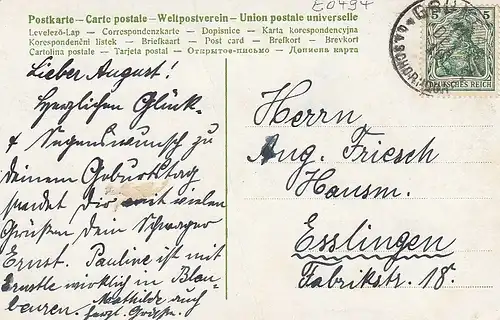 E0494
Postkarte - Carte postale - Weltpostverein - Union postale universelle
Levelező-Lap — Correspondenzkarte — Dopisnice — Karta korespondencyjna
Korespondenční lístek — Briefkaart — Post card — Brefkort — Brevkort
Cartolina postale — Tarjeta postal — Открытое-письмо — Дописна карта
5 5
DEUTSCHES REICH
Lieber August!
Herzlichen Glück-
& Segenswunsch zu
deinem Geburtstag
sendet Dir mit vielen
Grüßen dein Schwager
Ernst. Pauline ist mit
Ernstle wirklich in Blau-
beuren. Mathilde auch
herzl. Grüße.
Herrn
Aug. Friesch
Hausm.
Esslingen
Fabrikstr. 18.